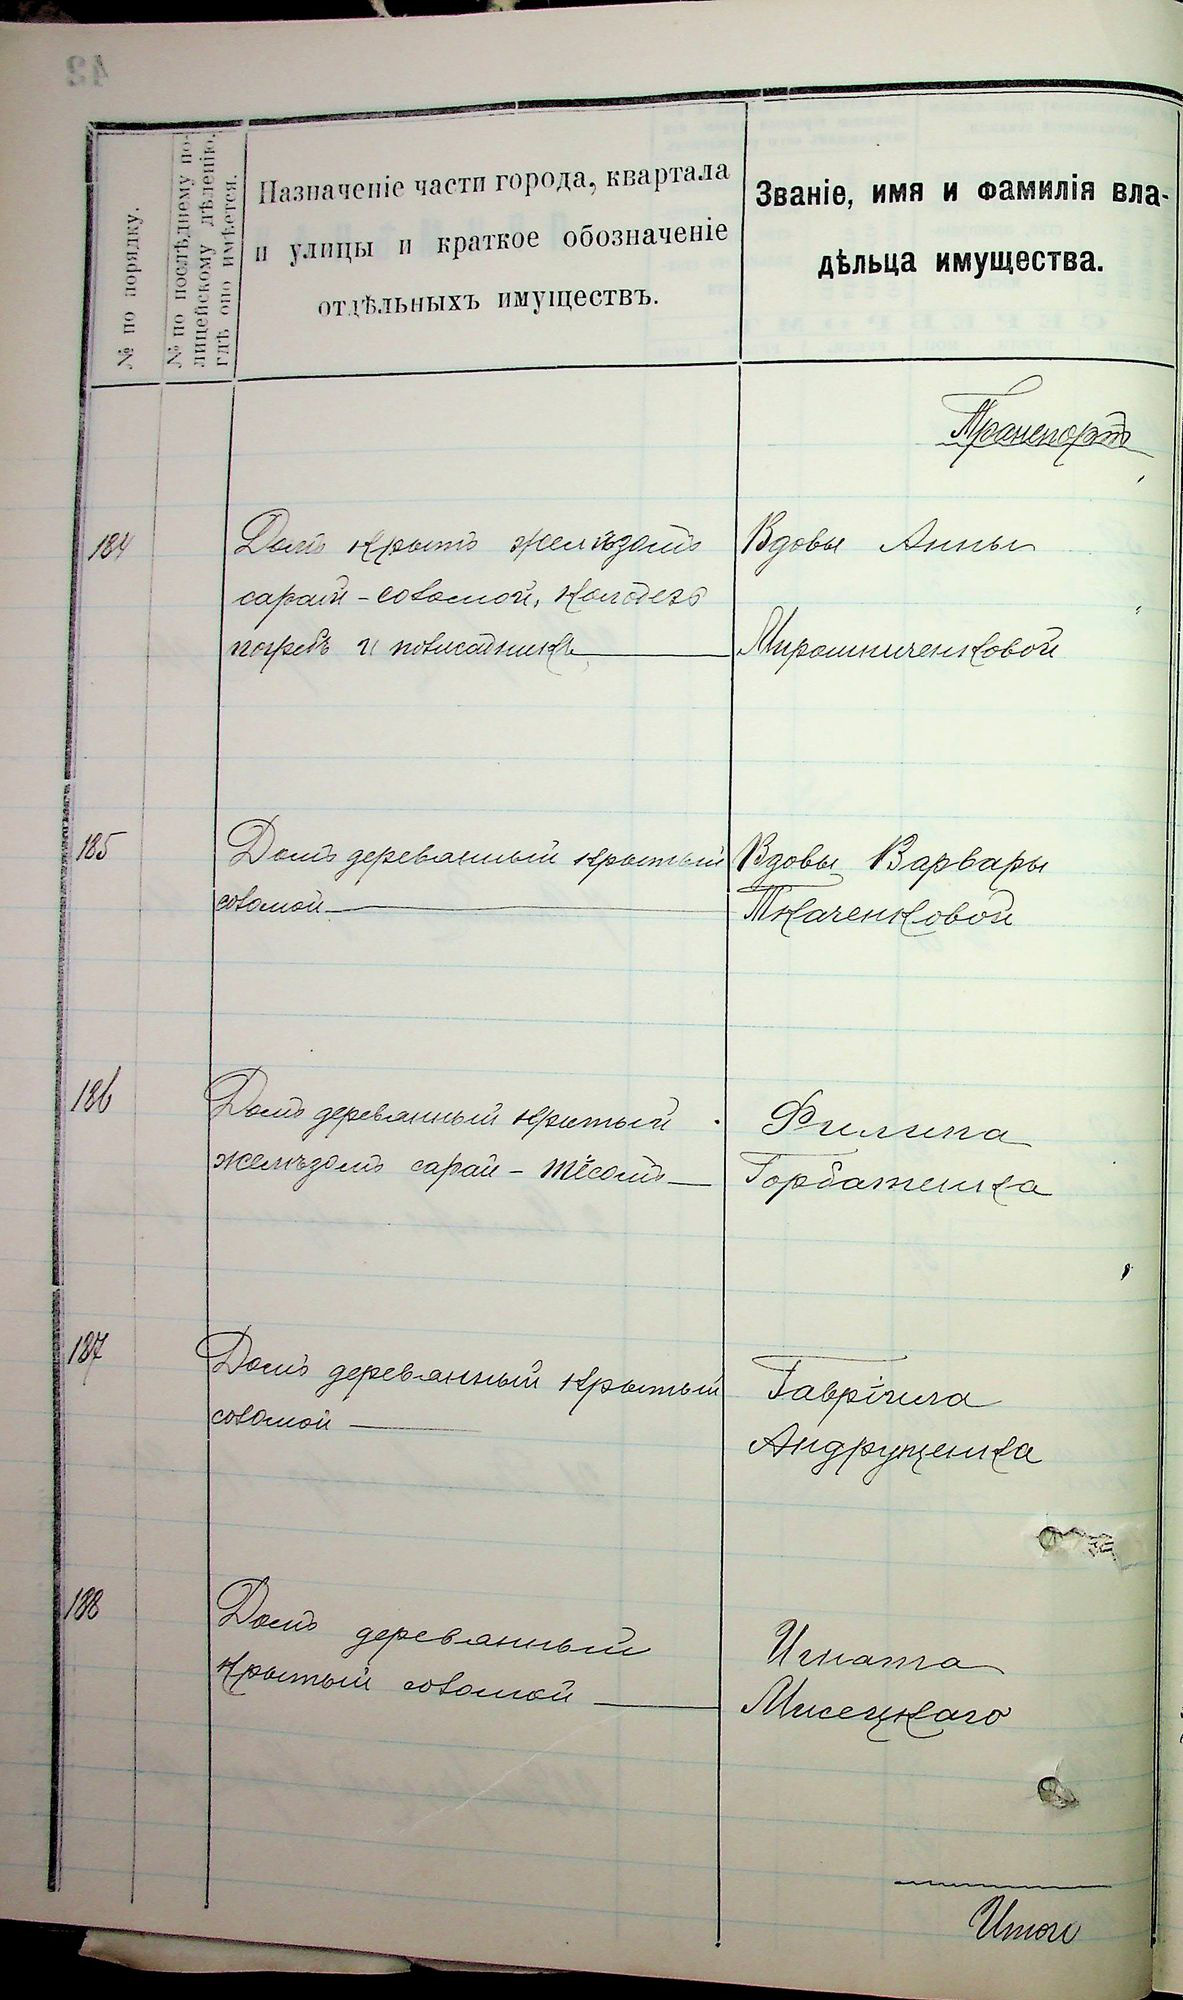 № по порядку.
№ по послѣднему по-
лицейскому дѣленію,
гдѣ оно имѣется.
Назначеніе части города, квартала
и улицы и краткое обозначеніе
отдѣльныхъ имуществъ.
Званіе, имя и фамилія вла-
дѣльца имущества.
Транспортъ
184
Домъ крытъ желѣзомъ
сарай - соломой, колодезь
погребъ и
Вдовы Анны
Мирошниченковой
185
Домъ деревянный крытый
соломой
Вдовы Варвары
Ткаченковой
186
Домъ деревянный крытый
желѣзомъ сарай - тёсомъ
Филипа
Горбатенка
187
Домъ деревянный крытый
соломой
Гавріила
Андрущенка
188
Домъ деревянный
крытый соломой
Игната
Мисецкаго
Итого